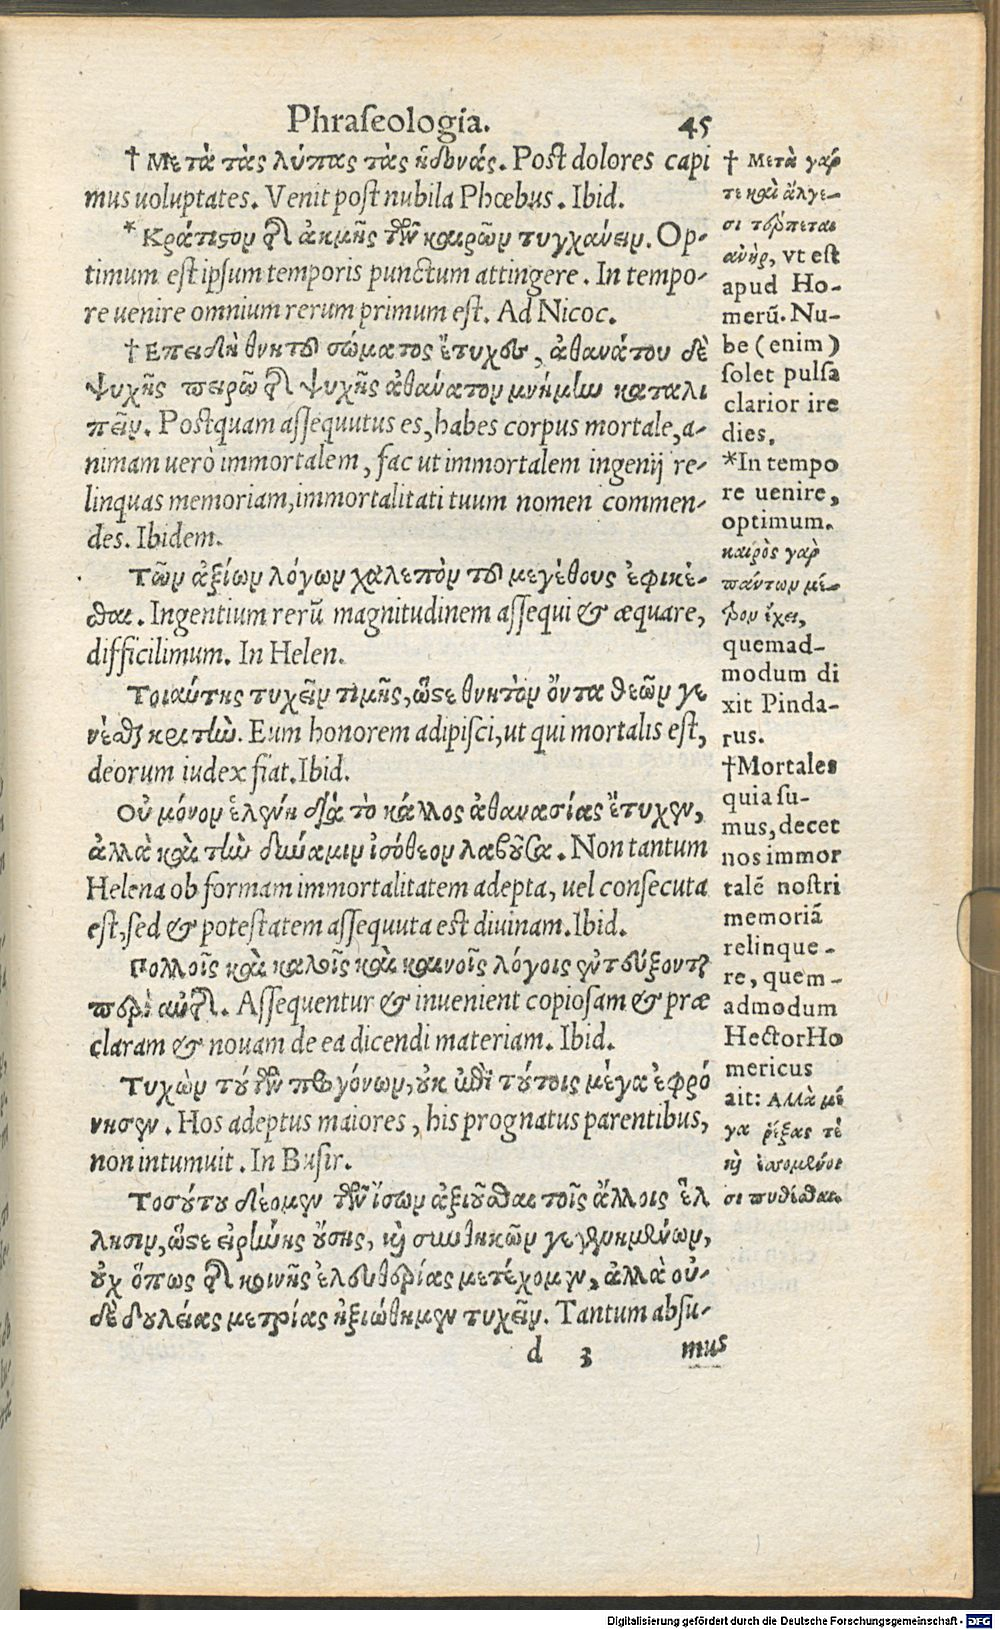 Phraſeologia. 45
† Μετὰ τὰς λύπας τὰς ἡδονάς. Post dolores capi
mus uoluptates. Venit poſt nubila Phœbus. Ibid.
* Κράτιϛον τ῀ ἀκμῆς τῶν καιρῶν τυγχάνειν. Op-
timum eſt ipſum temporis punctum attingere. In tempo-
re uenire omnium rerum primum eſt. Ad Nicoc.
† Επειδὴ θνητοῦ σώματος ἔτυχες, ἀθανάτου δὲ
ψυχῆς πειρῶ τ῀ ψυχῆς ἀθάνατον μνήμην καταλι
πεῖν. Postquam aſſequutus es, habes corpus mortale, a-
nimam uerò immortalem, fac ut immortalem ingenij re-
linquas memoriam, immortalitati tuum nomen commen-
des. Ibidem.
Τῶν ἀξίων λόγων χαλεπὸν τοῦ μεγέθους ἐφικέ-
σθαι. Ingentium rerũ magnitudinem aſſequi & æquare,
difficilimum. In Helen.
Τοιαύτης τυχεῖν τιμῆς, ὥϛε θνητὸν ὄντα θεῶν γε
νέσθαι κριτὴν. Eum honorem adipiſci, ut qui mortalis eſt,
deorum iudex fiat. Ibid.
Οὐ μόνον ἑλένη διὰ τὸ κάλλος ἀθανασίας ἔτυχεν,
ἀλλὰ καὶ τὴν δύναμιν ἰσόθεον λαβοῦσα. Non tantum
Helena ob formam immortalitatem adepta, uel conſecuta
eſt, ſed & poteſtatem aſſequuta est diuinam. Ibid.
Πολλοῖς καὶ καλοῖς καὶ καινοῖς λόγοις ἐντεύξονται
περὶ αὐτ῀. Aſſequentur & inuenient copioſam & præ
claram & nouam de ea dicendi materiam. Ibid.
Τυχὼν τούτων προγόνων, οὐκ ἐπὶ τούτοις μέγα ἐφρό
νησεν. Hos adeptus maiores, his prognatus parentibus,
non intumuit. In Buſir.
Τοσούτου δέομεν τῶν ἴσων ἀξιοῦσθαι τοῖς ἄλλοις ἕλ
λησιν, ὥϛε εἰρήνης οὔσης, καὶ συνθηκῶν γεγενημένων,
οὐχ ὅπως τ῀ κοινῆς ἐλευθερίας μετέχομεν, ἀλλὰ οὐ-
δὲ δουλείας μετρίας ἠξιώθημεν τυχεῖν. Tantum abſu-
d 3 mus
† Μετὰ γάρ
τε καὶ ἄλγε-
σι τέρπεται
ἀνὴρ, vt est
apud Ho-
merũ. Nu-
be (enim)
ſolet pulſa
clarior ire
dies.
*In tempo
re uenire,
optimum.
καιρὸς γὰρ
πάντων μέ-
τρον ἔχει,
quemad-
modum di
xit Pinda-
rus.
†Mortales
quia ſu-
mus, decet
nos immor
talẽ noſtri
memoriã
relinque-
re, quem-
admodum
Hector Ho
mericus
ait: Αλλὰ μέ
γα ῥέξας τὶ
καὶ ἐσομένοι
σι πυθέσθαι.
Digitalisierung gefördert durch die Deutsche Forschungsgemeinschaft - DFG